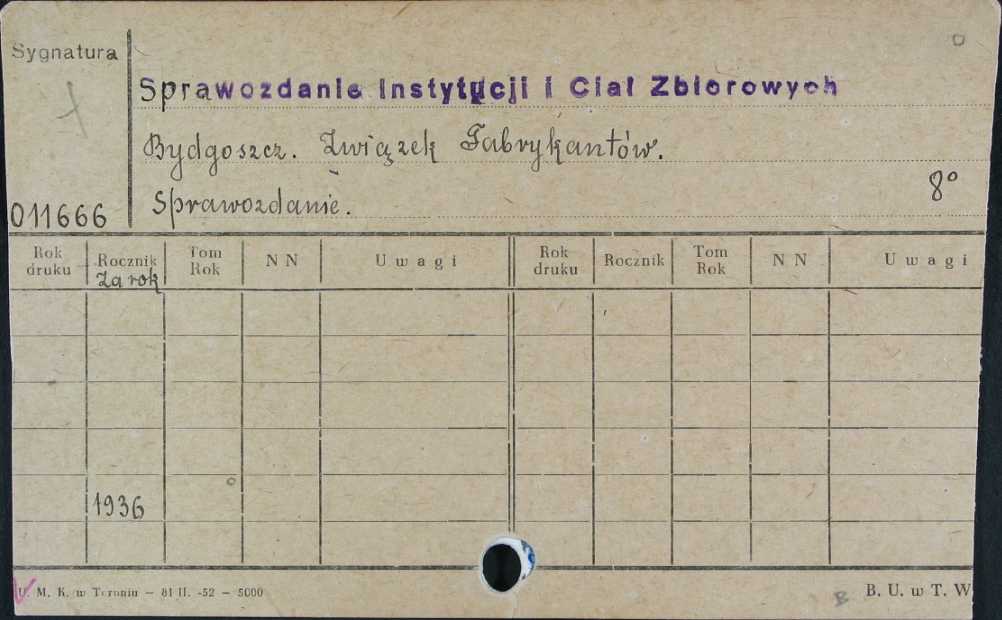 Sygnatura
Sprawozdanie Instytucji i Ciał Zbiorowych
Bydgoszcz. Związek Fabrykantów.
8°
011666 Sprawozdanie.
Rok druku Rocznik Tom Rok N N Uwagi Rok druku Rocznik Tom Rok N N Uwagi
Za rok
1936
U. M. K. w Toruniu — 81 II. -52 — 5000 B. U. w T. W